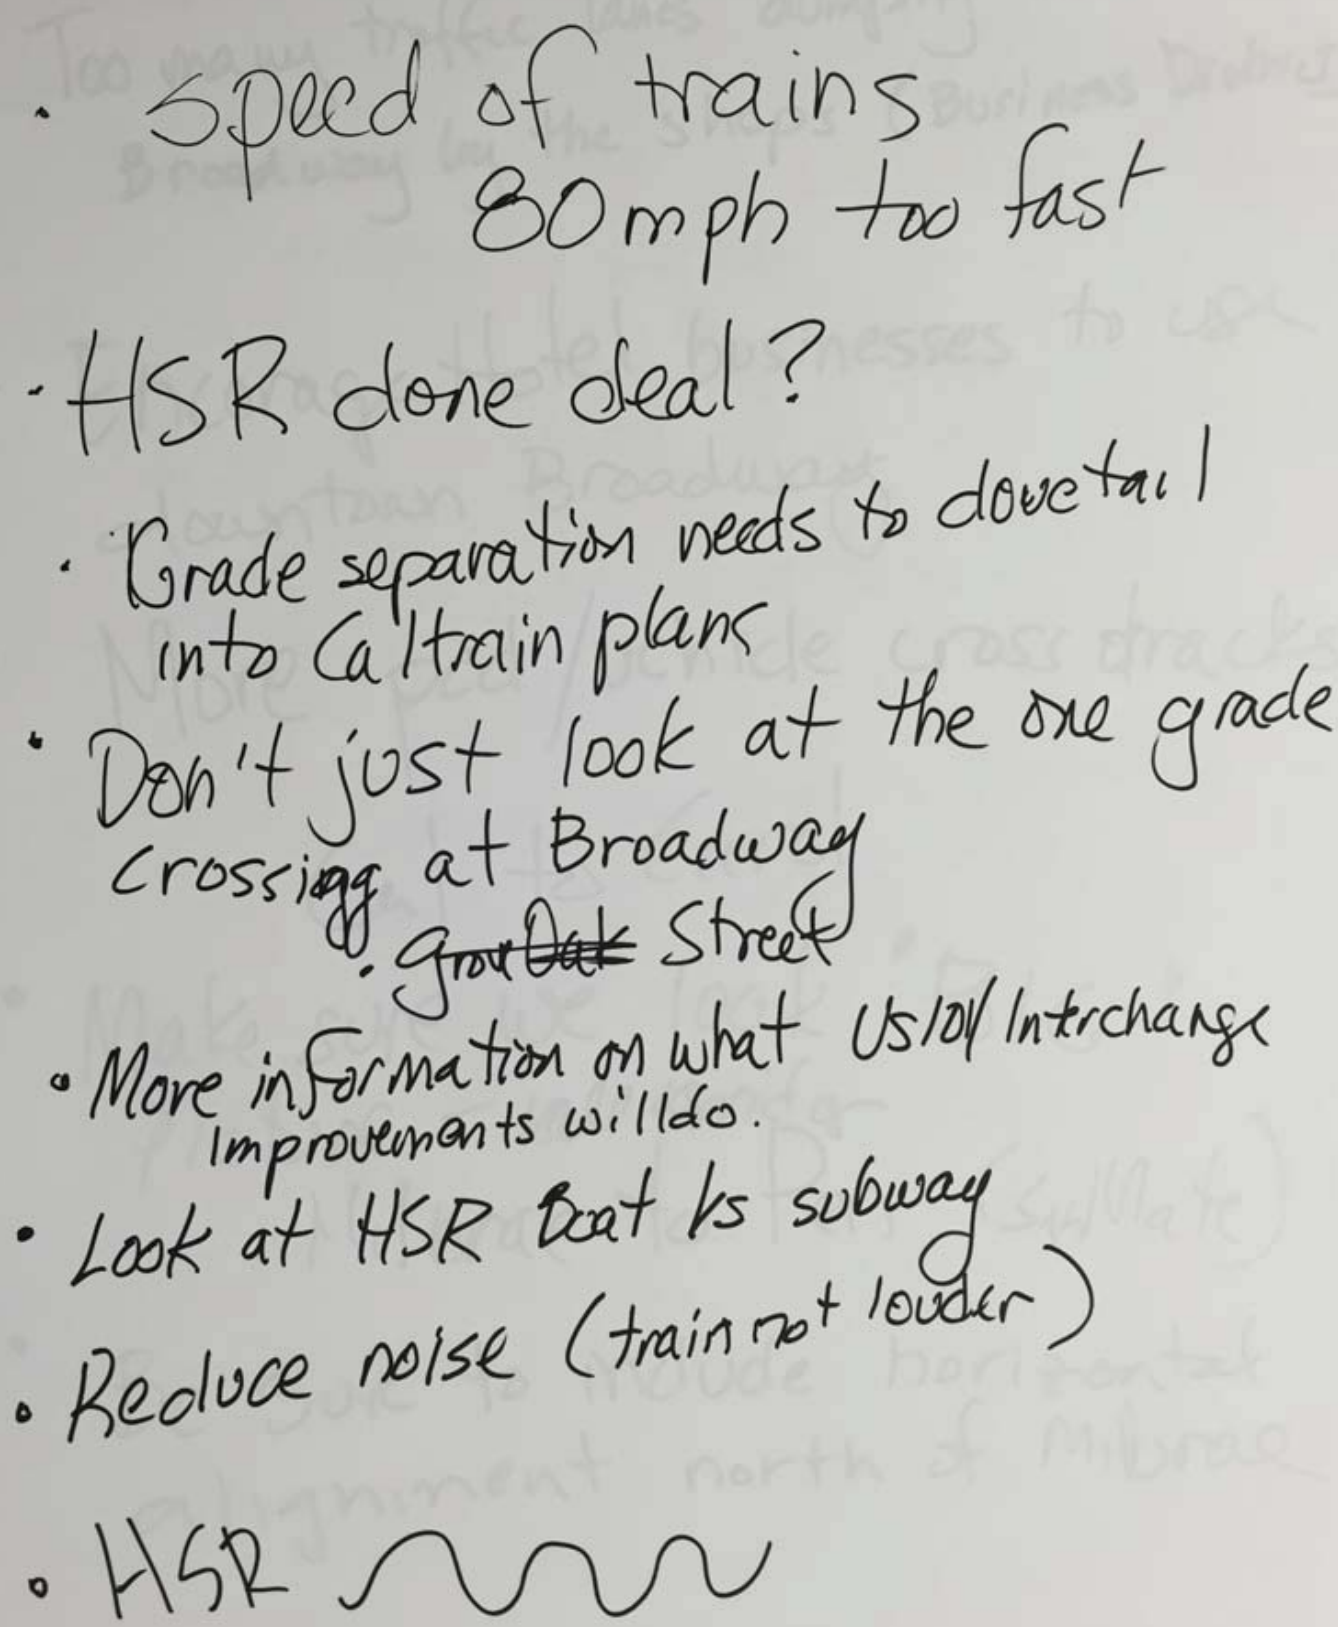 · Speed of trains
80mph too fast
· HSR done deal?
· Grade separation needs to dovetail
into Caltrain plans
· Don't just look at the one grade
crossing at Broadway
· Street
• More information on what US101 Interchange
Improvements will do.
• Look at HSR Boat Vs subway
• Reduce noise (train not louder)
• HSR